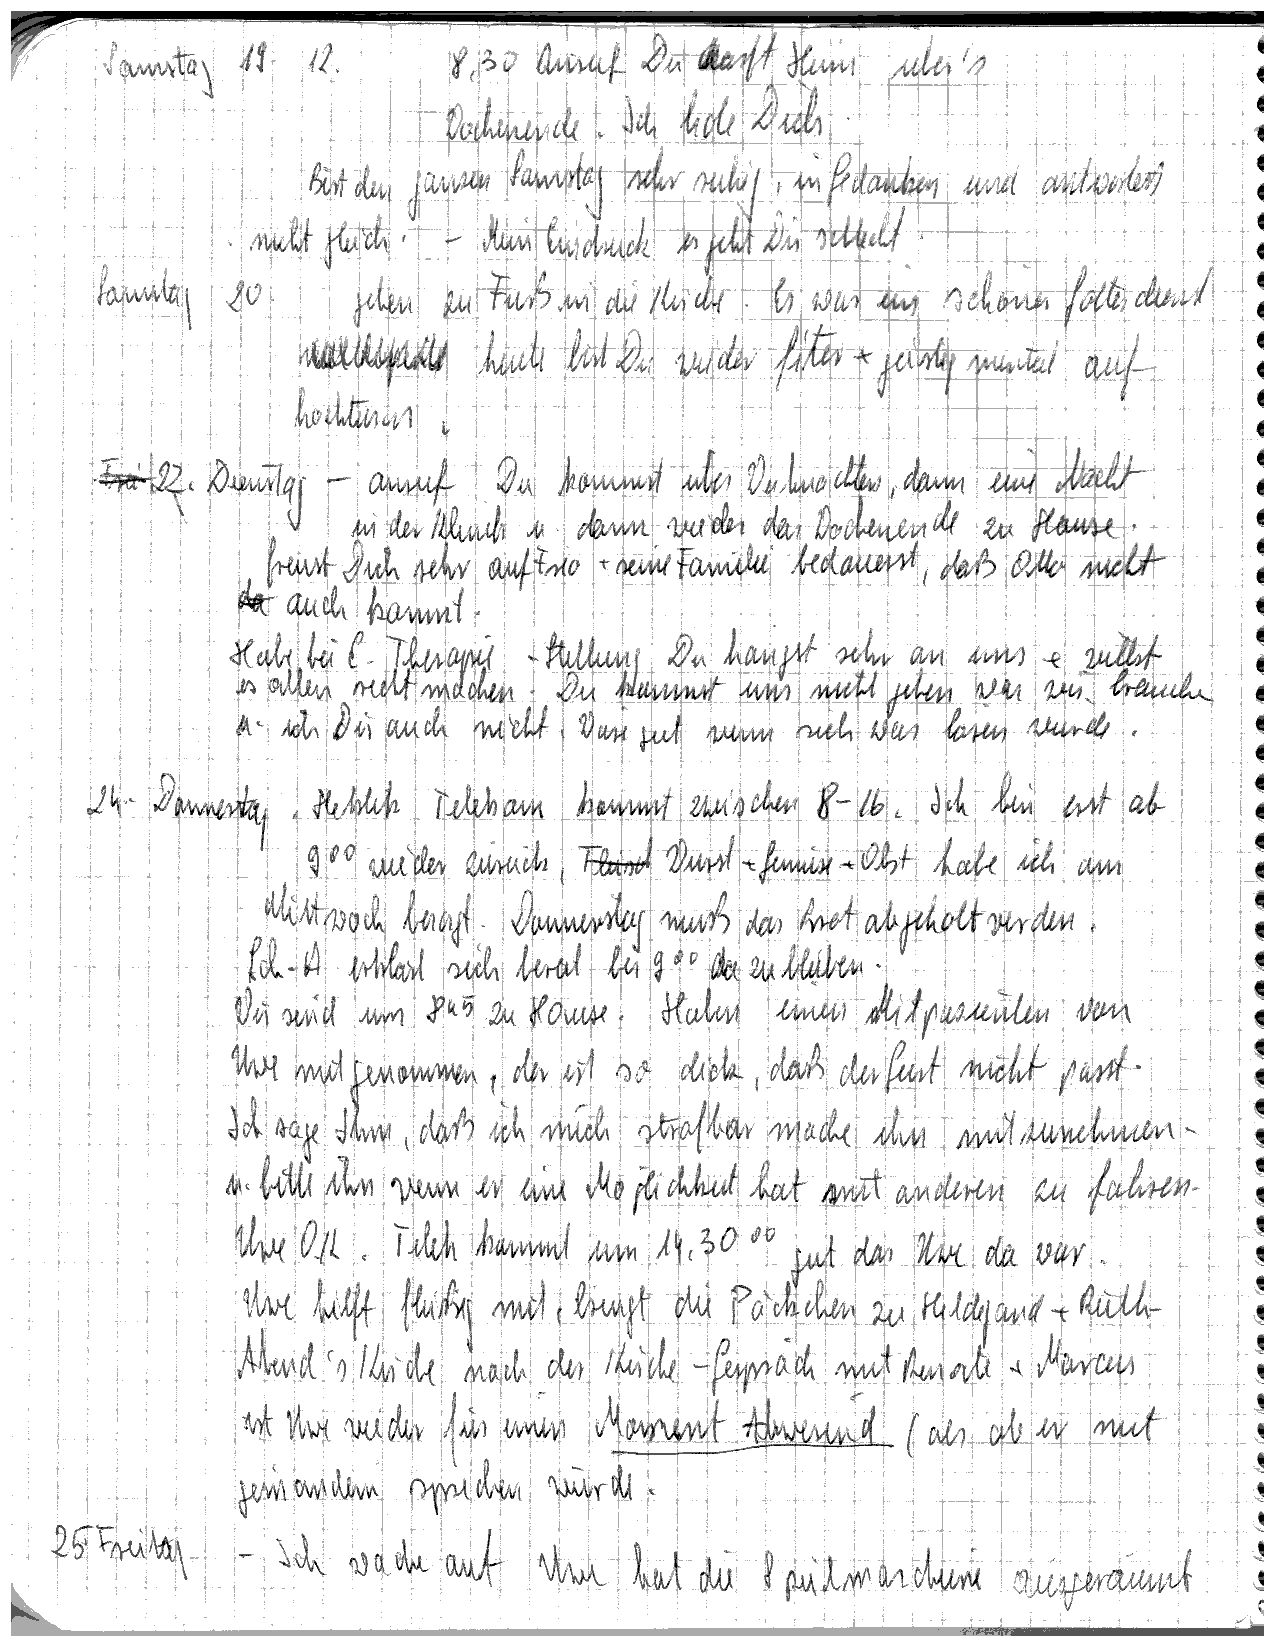 Samstag 19. 12. 8.30 Anruf Du darfst Heim über's
Wochenende. Ich hole Dich.
Bist den ganzen Samstag sehr ruhig, in Gedanken und antwortest
nicht gleich. - Mein Eindruck es geht Dir schlecht.
Samstag 20. gehen zu Fuß in die Kirche. Es war ein schöner Gottesdienst
heute bist Du wieder fiter + geistig mental auf
hochturen.
22. Dienstag - anruf Du kommst über Weihnachten, dann eine Nacht
in der Klinik u dann wieder das Wochenende zu Hause.
freust Dich sehr auf + seine Familie bedauerst, daß Otto nicht
da auch kommt.
Habe bei C. Therapie - Stellung Du hängst sehr an uns + willst
es allen recht machen. Du kannst uns nicht geben was wir brauchen
u. ich Dir auch nicht. Wäre gut wenn sich was lösen würde.
24. Donnerstag. Hektik Telekom kommt zwischen 8-16. Ich bin erst ab
9⁰⁰ wieder zurück, Fleisch Wurst + Gemüse + Obst habe ich am
Mittwoch besorgt. Donnerstag muß das Brot abgeholt werden.
erklärt sich bereit bis 9⁰⁰ da zu bleiben.
Wir sind um 8⁴⁵ zu Hause. Haben einen Mitpazienten von
Uwe mitgenommen, der ist so dick, daß der Gurt nicht passt.
Ich sage Ihm, daß ich mich strafbar mache ihn mitzunehmen -
u. bitte ihn wenn er eine Möglichkeit hat mit anderen zu fahren -
Uwe O.K. Telek kommt um 14.30⁰⁰ gut das Uwe da war.
Uwe hilft fleißig mit, bringt die Päckchen zu Hildegard + Ruth -
Abend's Kirche nach der Kirche - Gespräch mit Renate + Marcus
ist Uwe wieder für einen Moment Abwesend (als ob er mit
jemandem sprechen würde.
25 Freitag - Ich wache auf Uwe hat die Spülmaschine ausgeräumt